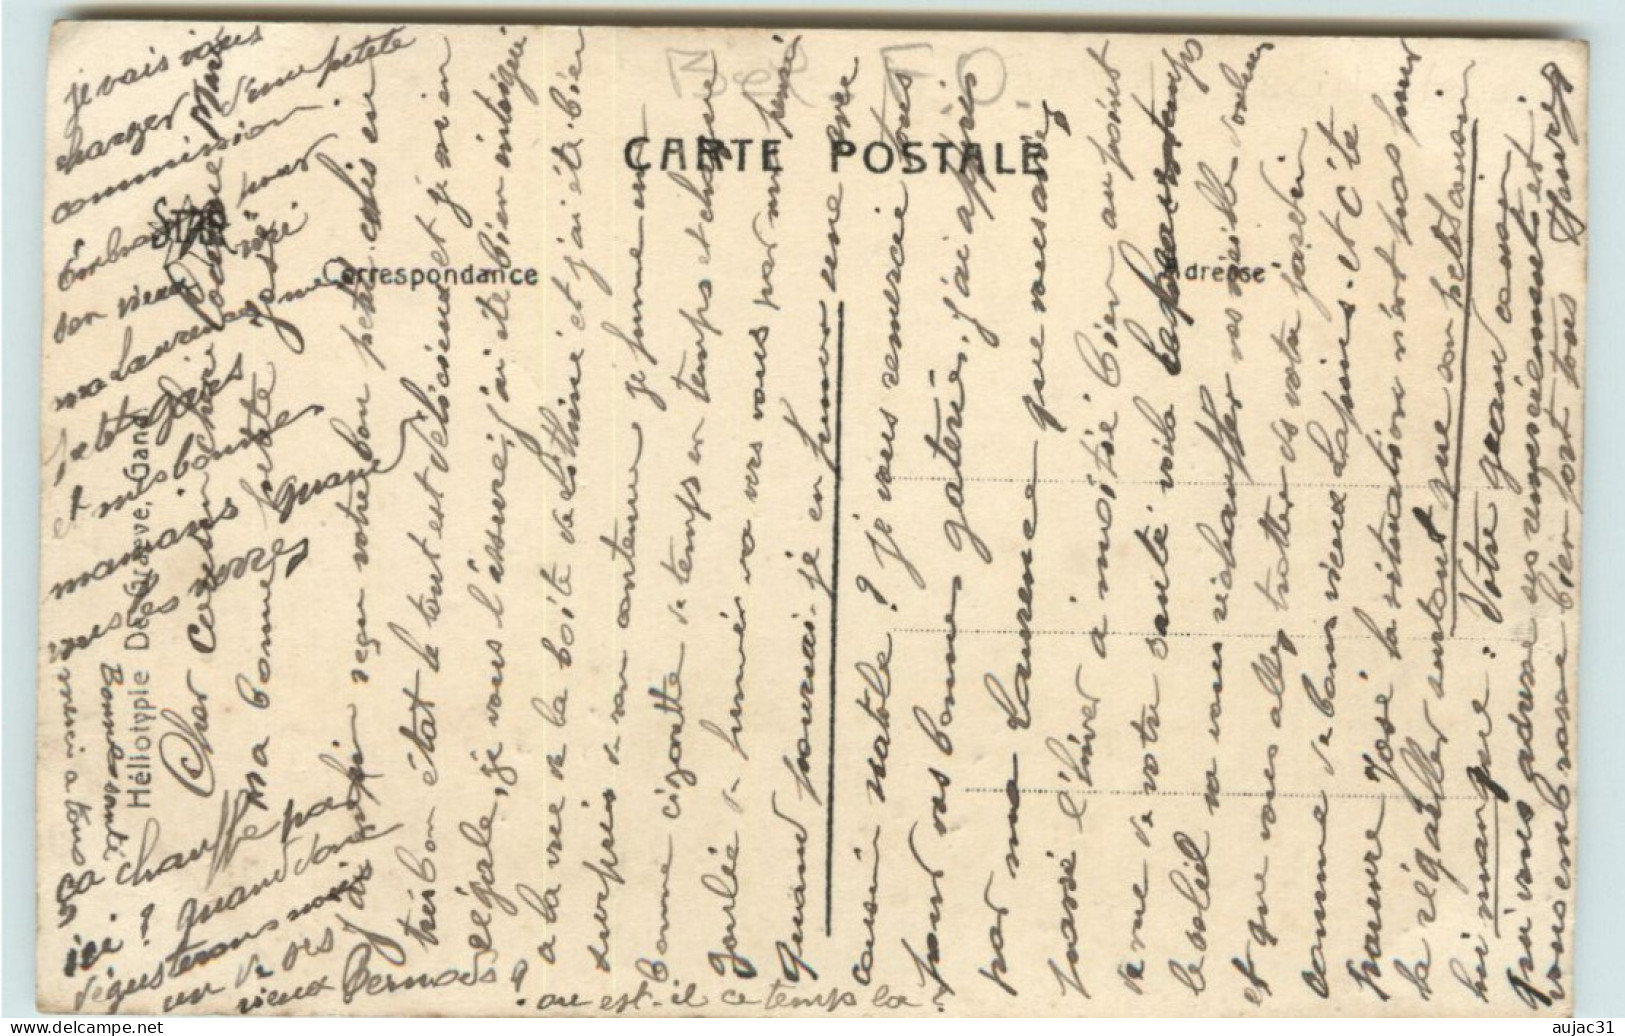 CARTE POSTALE
STAR
Correspondance
Adresse
Héliotypie De Graeve, Gand
Cher cousin chère cousine
Ma bonne petite José
J'ai enfin reçu votre bon petit colis en
très bon état le tout est délicieux et je m'en
régale, je vous l'assure, j'ai été bien intrigué
a la vue de la boite de et j'ai été bien
surpris de son contenu je fume une
bonne cigarette de temps en temps et chaque
goulée de fumée va vers vous par ma pensée
quand pourrais-je en fumer une avec
cousin ? je vous remercie tous
pour vos bonnes gateries, j'ai appris
par ma Laurence que vous avez
passé l'hiver a moitié bien au point
de vue de votre santé voila
le soleil va vous réchauffer vos vieille douleur
et que vous allez trotter de votre jardin
comme de bons vieux lapins. et cite
pauvre José la situation n'est pas pour
la régaller surtout que son petit cousin
lui manque : Votre grand cousin
qui vous adresse ses remerciements et
vous embrasse bien fort tous
je vais vous
charger d'une petite
commission.
Embrassez pour
son vieux
ma Laurence
petits gars
et mes bonnes
mamans quand
vous les verrez
Bonne santé
merci a tous
ça chauffe par
ici ? quand donc
dégusterons nous
un de ses
vieux Pernods ?
? ou est-il ce temps la ?
aujac31